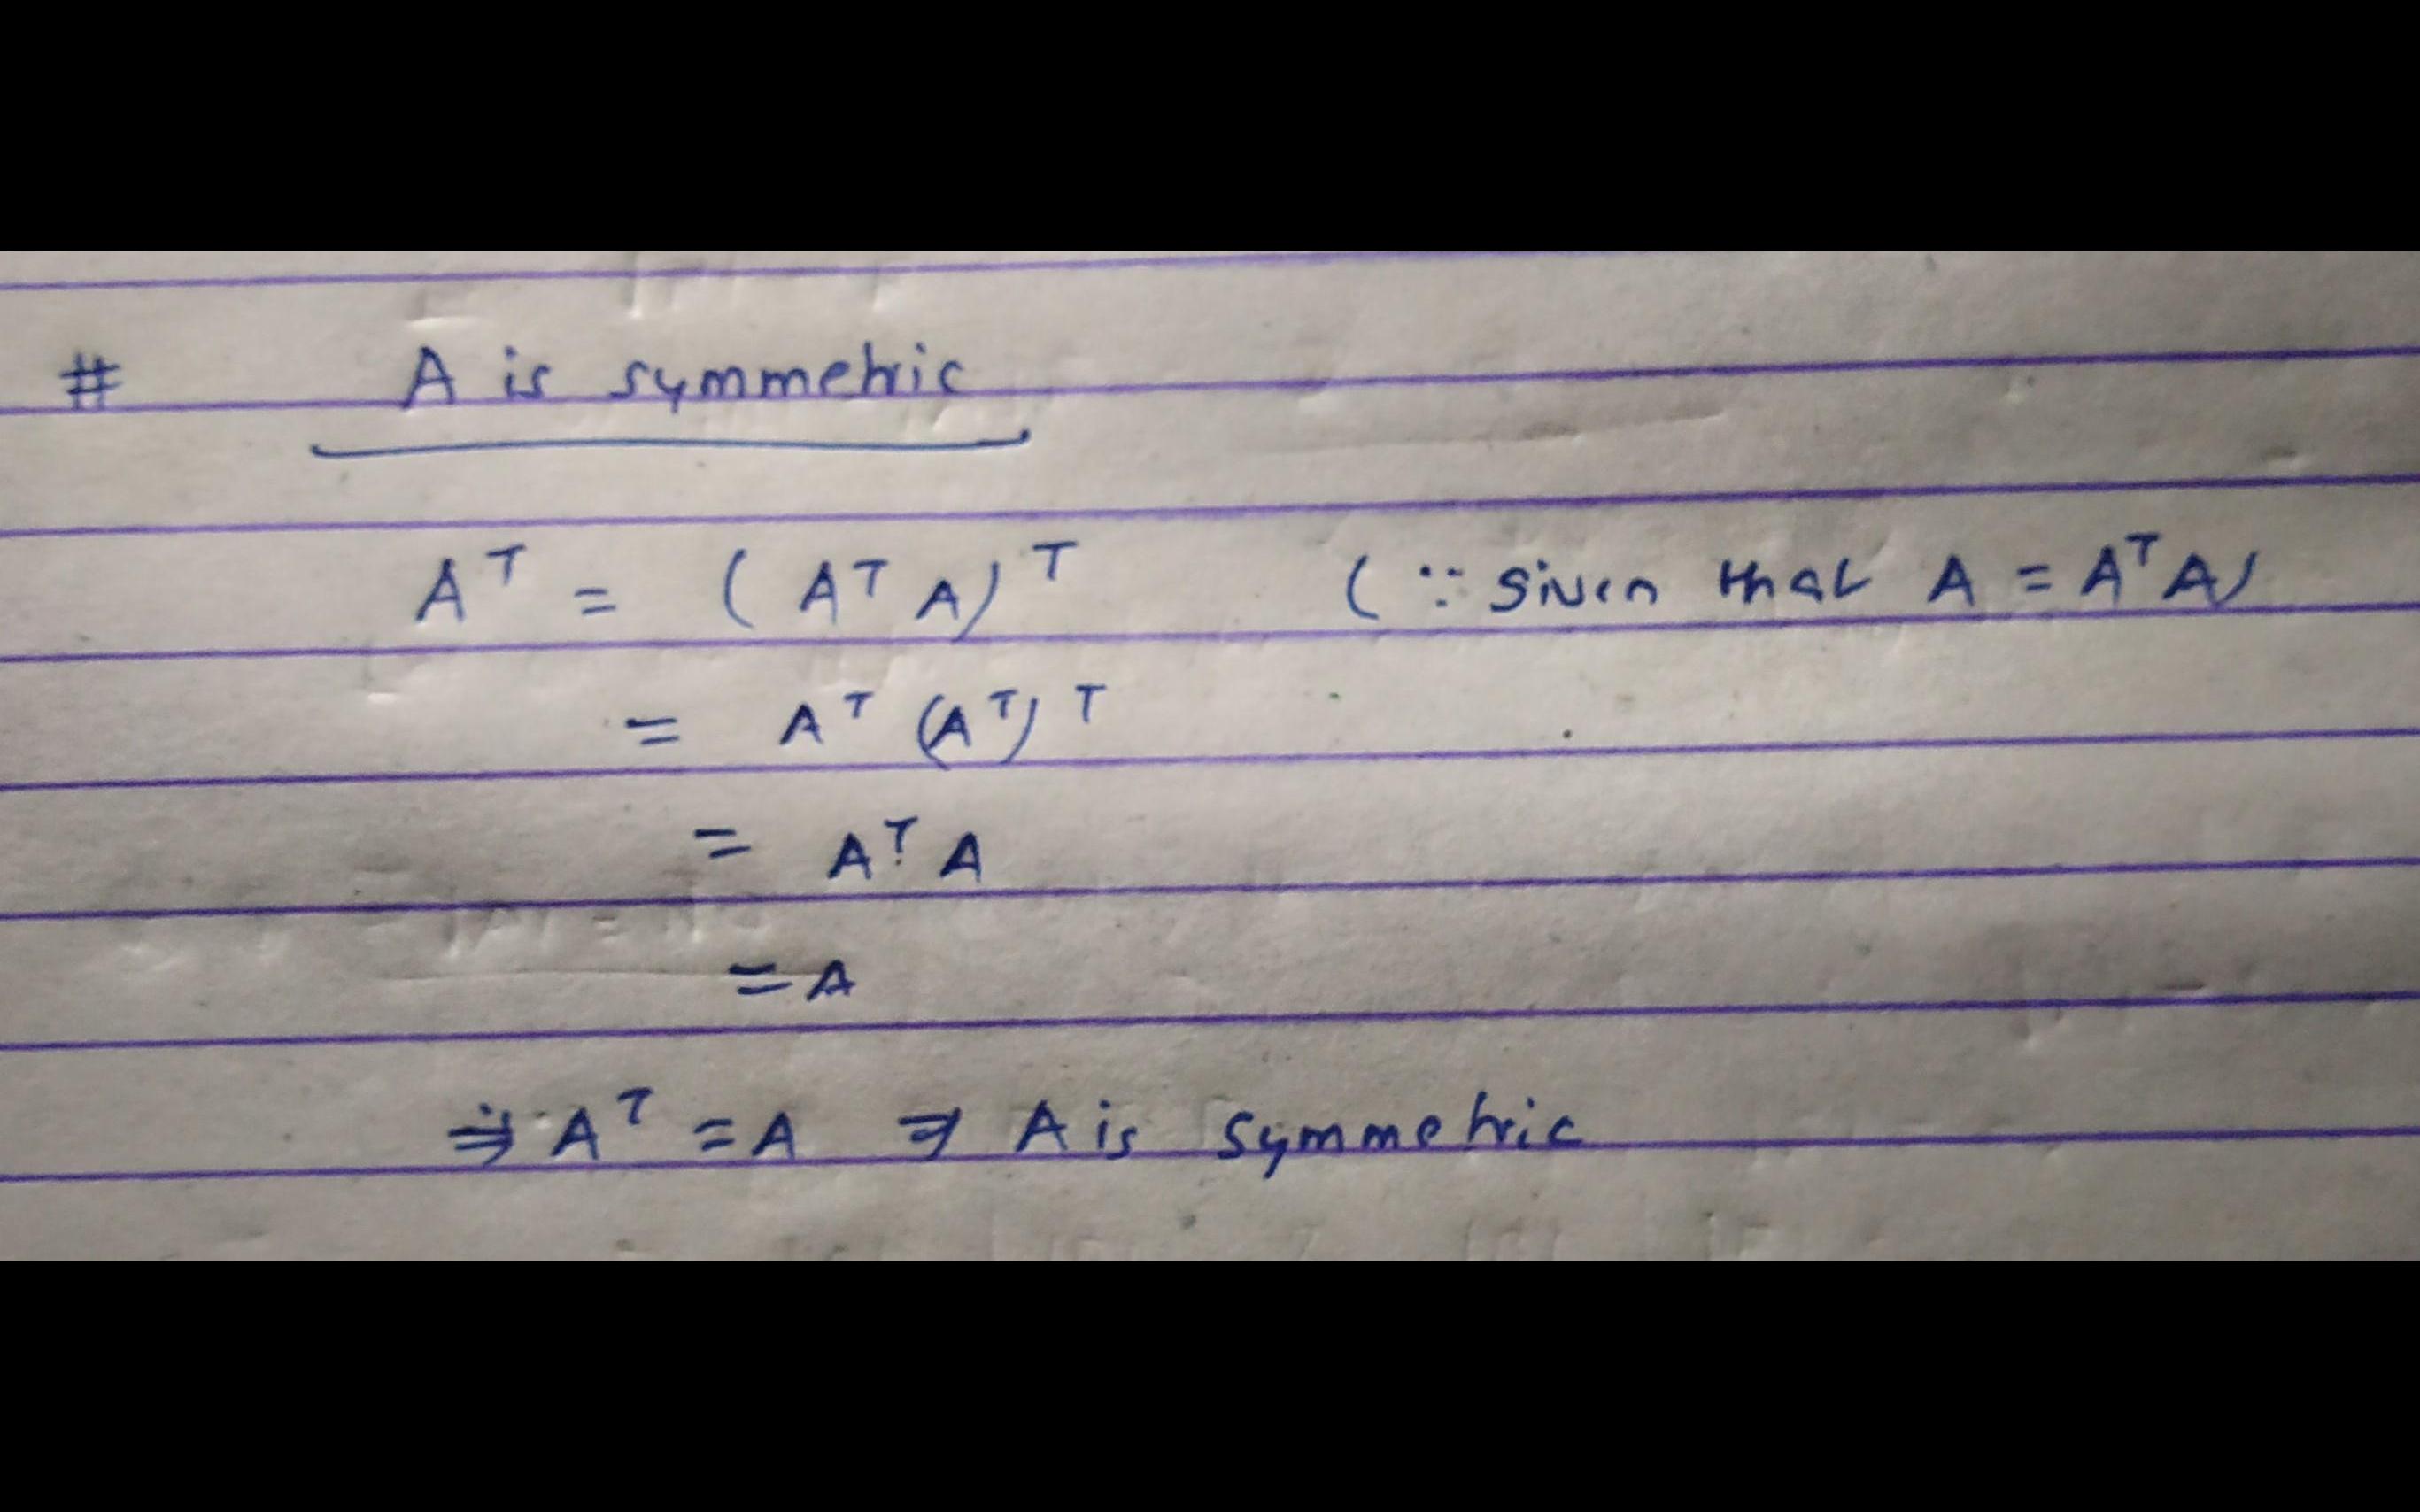 # A is symmetric
Aᵀ = (Aᵀ A)ᵀ (∵ given that A = AᵀA)
= Aᵀ (Aᵀ)ᵀ
= Aᵀ A
= A
⇒ Aᵀ = A ⇒ A is symmetric